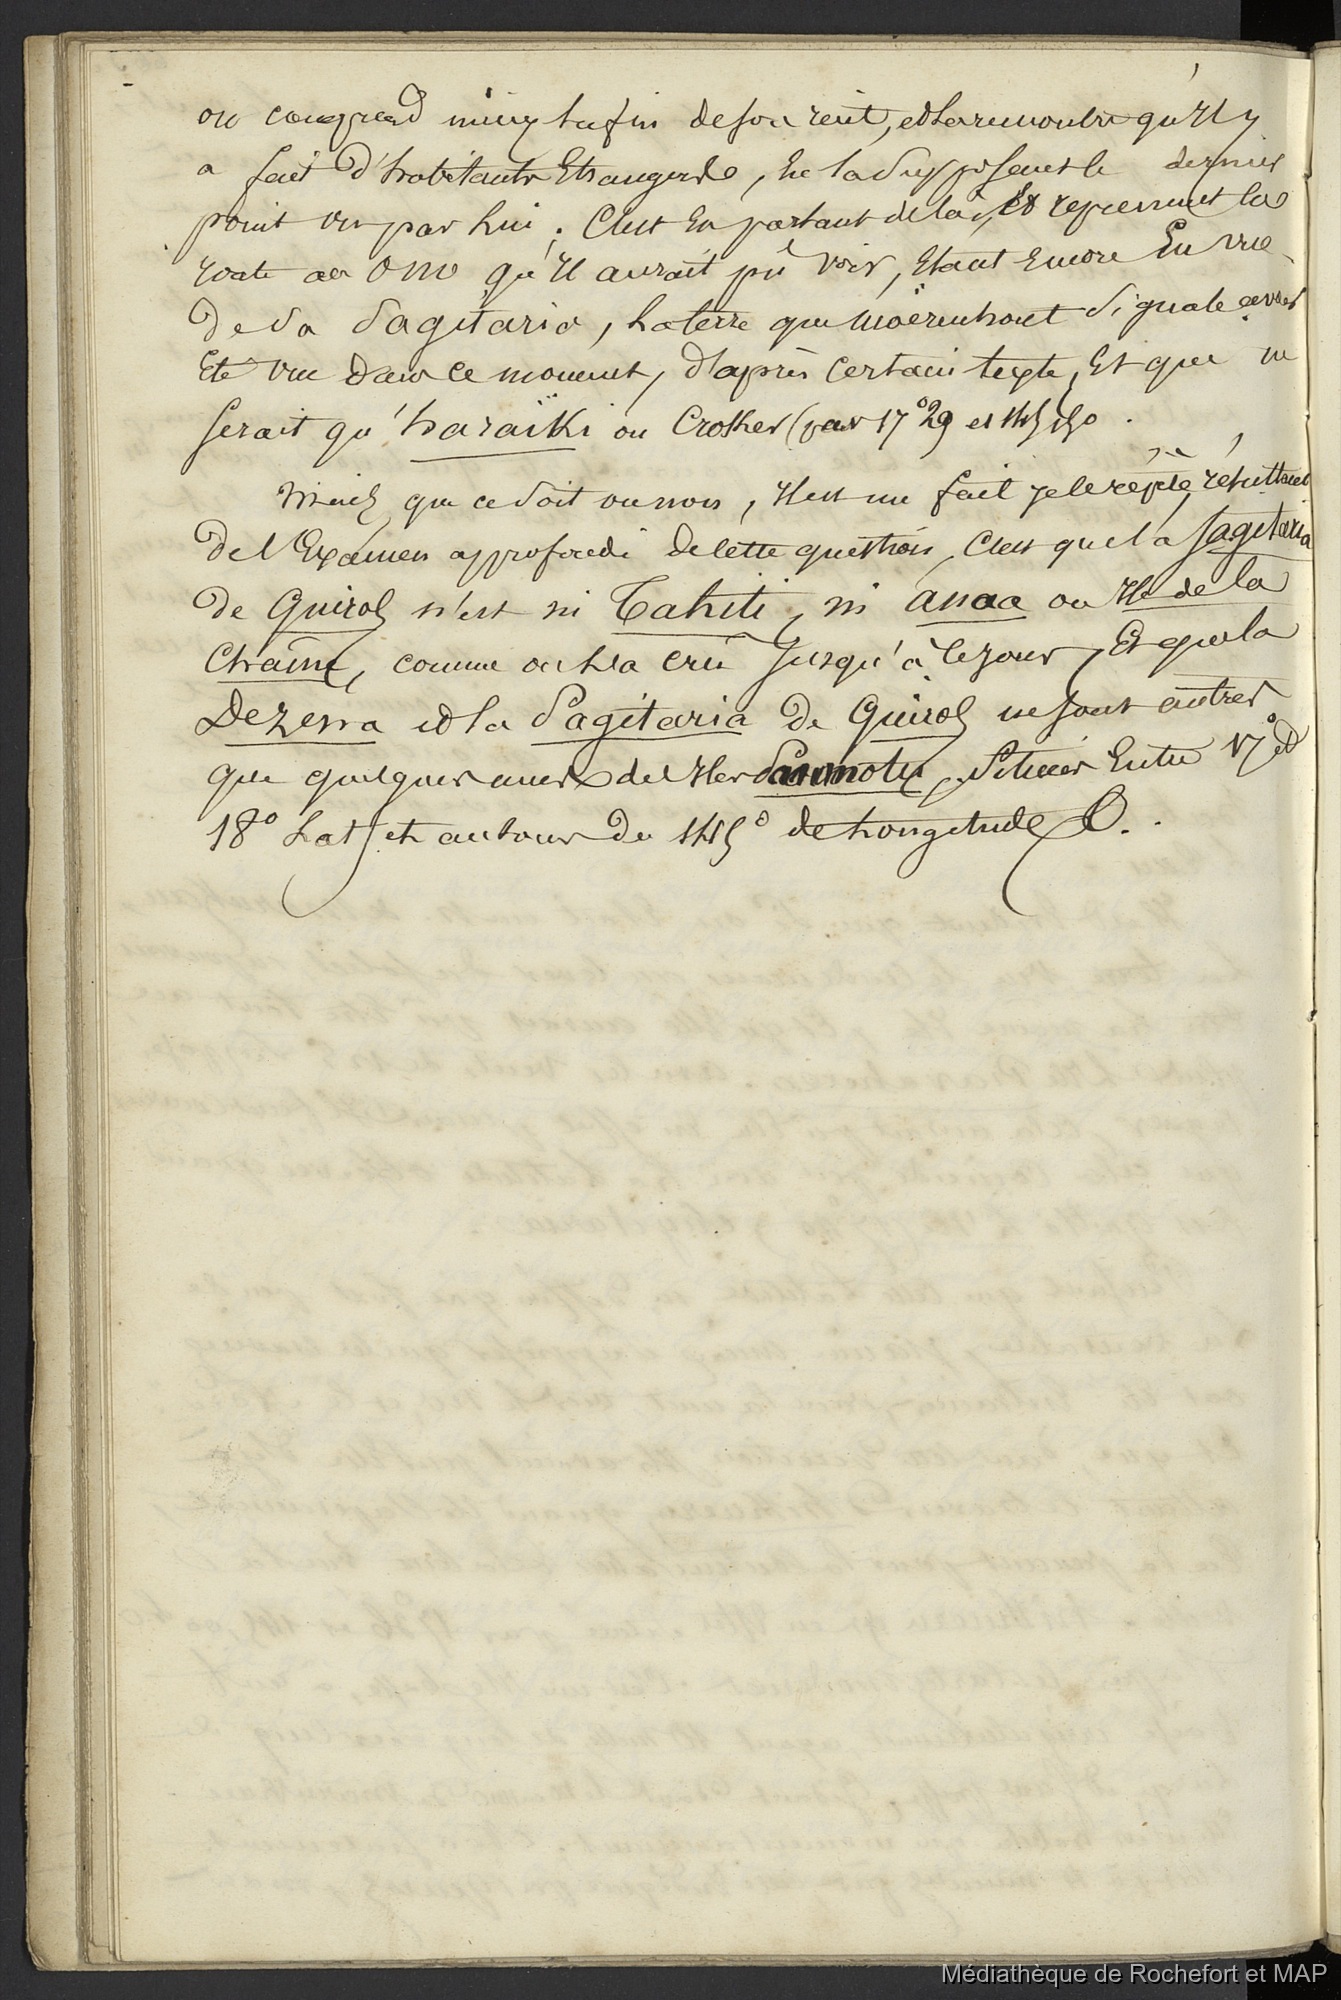 on comprend mieux la fin de son récit, et la rencontre qu'Il y
a fait d'habitants Etrangers, En la supposant le dernier
point vu par lui ; C'est En partant de là, Et reprenant la
route au ONO qu'Il aurait pû voir, Etant Encore En vue
de sa Sagitaria, la terre que Moërenhout signale avoir
Eté vue dans ce moment, d'après certain texte, Et que ne
serait qu'haraïki ou Crosker (par 17°29 et 145,50.
Mais que ce soit ou non, Il est un fait je le répète, résultant
de l'Examen approfondi de cette question, C'est que la Sagitaria
de Quiros n'est ni Tahiti, ni anaa ou Ile de la
Chaîne, comme on l'a crû Jusqu'à ce jour, Et que la
Dezena et la Sagitaria de Quiros ne sont autres
que quelques unes des Iles Paumotu, Situées Entre 17° et
18° Lat. et autour du 145° de Longitude O.
Médiathèque de Rochefort et MAP